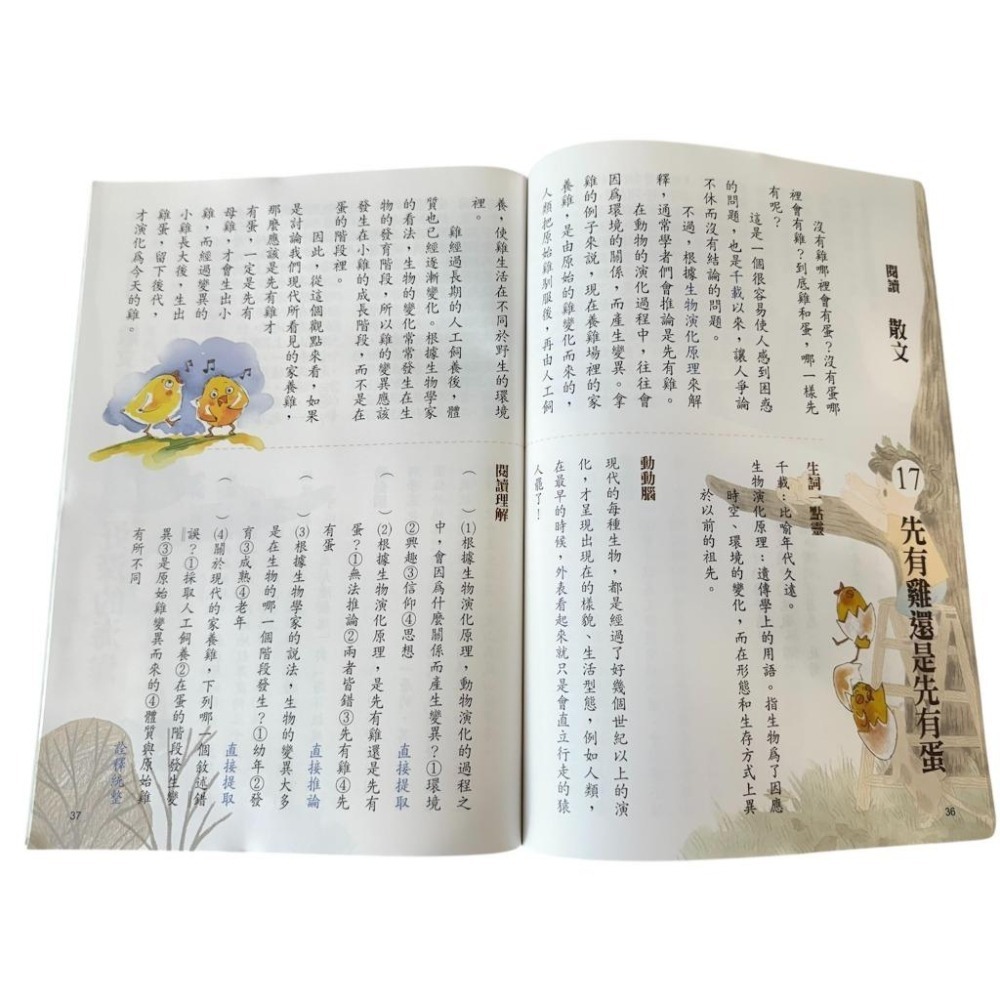 17
先有雞還是先有蛋
閱讀 散文
沒有雞哪裡會有蛋？沒有蛋哪
裡會有雞？到底雞和蛋，哪一樣先
有呢？
這是一個很容易使人感到困惑
的問題，也是千載以來，讓人爭論
不休而沒有結論的問題。
不過，根據生物演化原理來解
釋，通常學者們會推論是先有雞。
在動物的演化過程中，往往會
因為環境的關係，而產生變異。拿
雞的例子來說，現在養雞場裡的家
養雞，是由原始的雞變化而來的，
人類把原始雞馴服後，再由人工飼
生詞一點靈
千載：比喻年代久遠。
生物演化原理：遺傳學上的用語。指生物為了因應
時空、環境的變化，而在形態和生存方式上異
於以前的祖先。
動動腦
現代的每種生物，都是經過了好幾個世紀以上的演
化，才呈現出現在的樣貌、生活型態，例如人類，
在最早的時候，外表看起來就只是會直立行走的猿
人罷了！
36
養，使雞生活在不同於野生的環境
裡。
雞經過長期的人工飼養後，體
質也已經逐漸變化。根據生物學家
的看法，生物的變化常常發生在生
物的發育階段，所以雞的變異應該
發生在小雞的成長階段，而不是在
蛋的階段裡。
因此，從這個觀點來看，如果
是討論我們現代所看見的家養雞，
那麼應該是先有雞才
有蛋，一定是先有
母雞，才會生出小
雞，而經過變異的
小雞長大後，生出
雞蛋，留下後代，
才演化為今天的雞。
閱讀理解
（ ）⑴根據生物演化原理，動物演化的過程之
中，會因為什麼關係而產生變異？①環境
②興趣③信仰④思想 直接提取
（ ）⑵根據生物演化原理，是先有雞還是先有
蛋？①無法推論②兩者皆錯③先有雞④先
有蛋 直接提取
（ ）⑶根據生物學家的說法，生物的變異大多
是在生物的哪一個階段發生？①幼年②發
育③成熟④老年 直接推論
（ ）⑷關於現代的家養雞，下列哪一個敘述錯
誤？①採取人工飼養②在蛋的階段發生變
異③是原始雞變異而來的④體質與原始雞
有所不同 詮釋統整
37